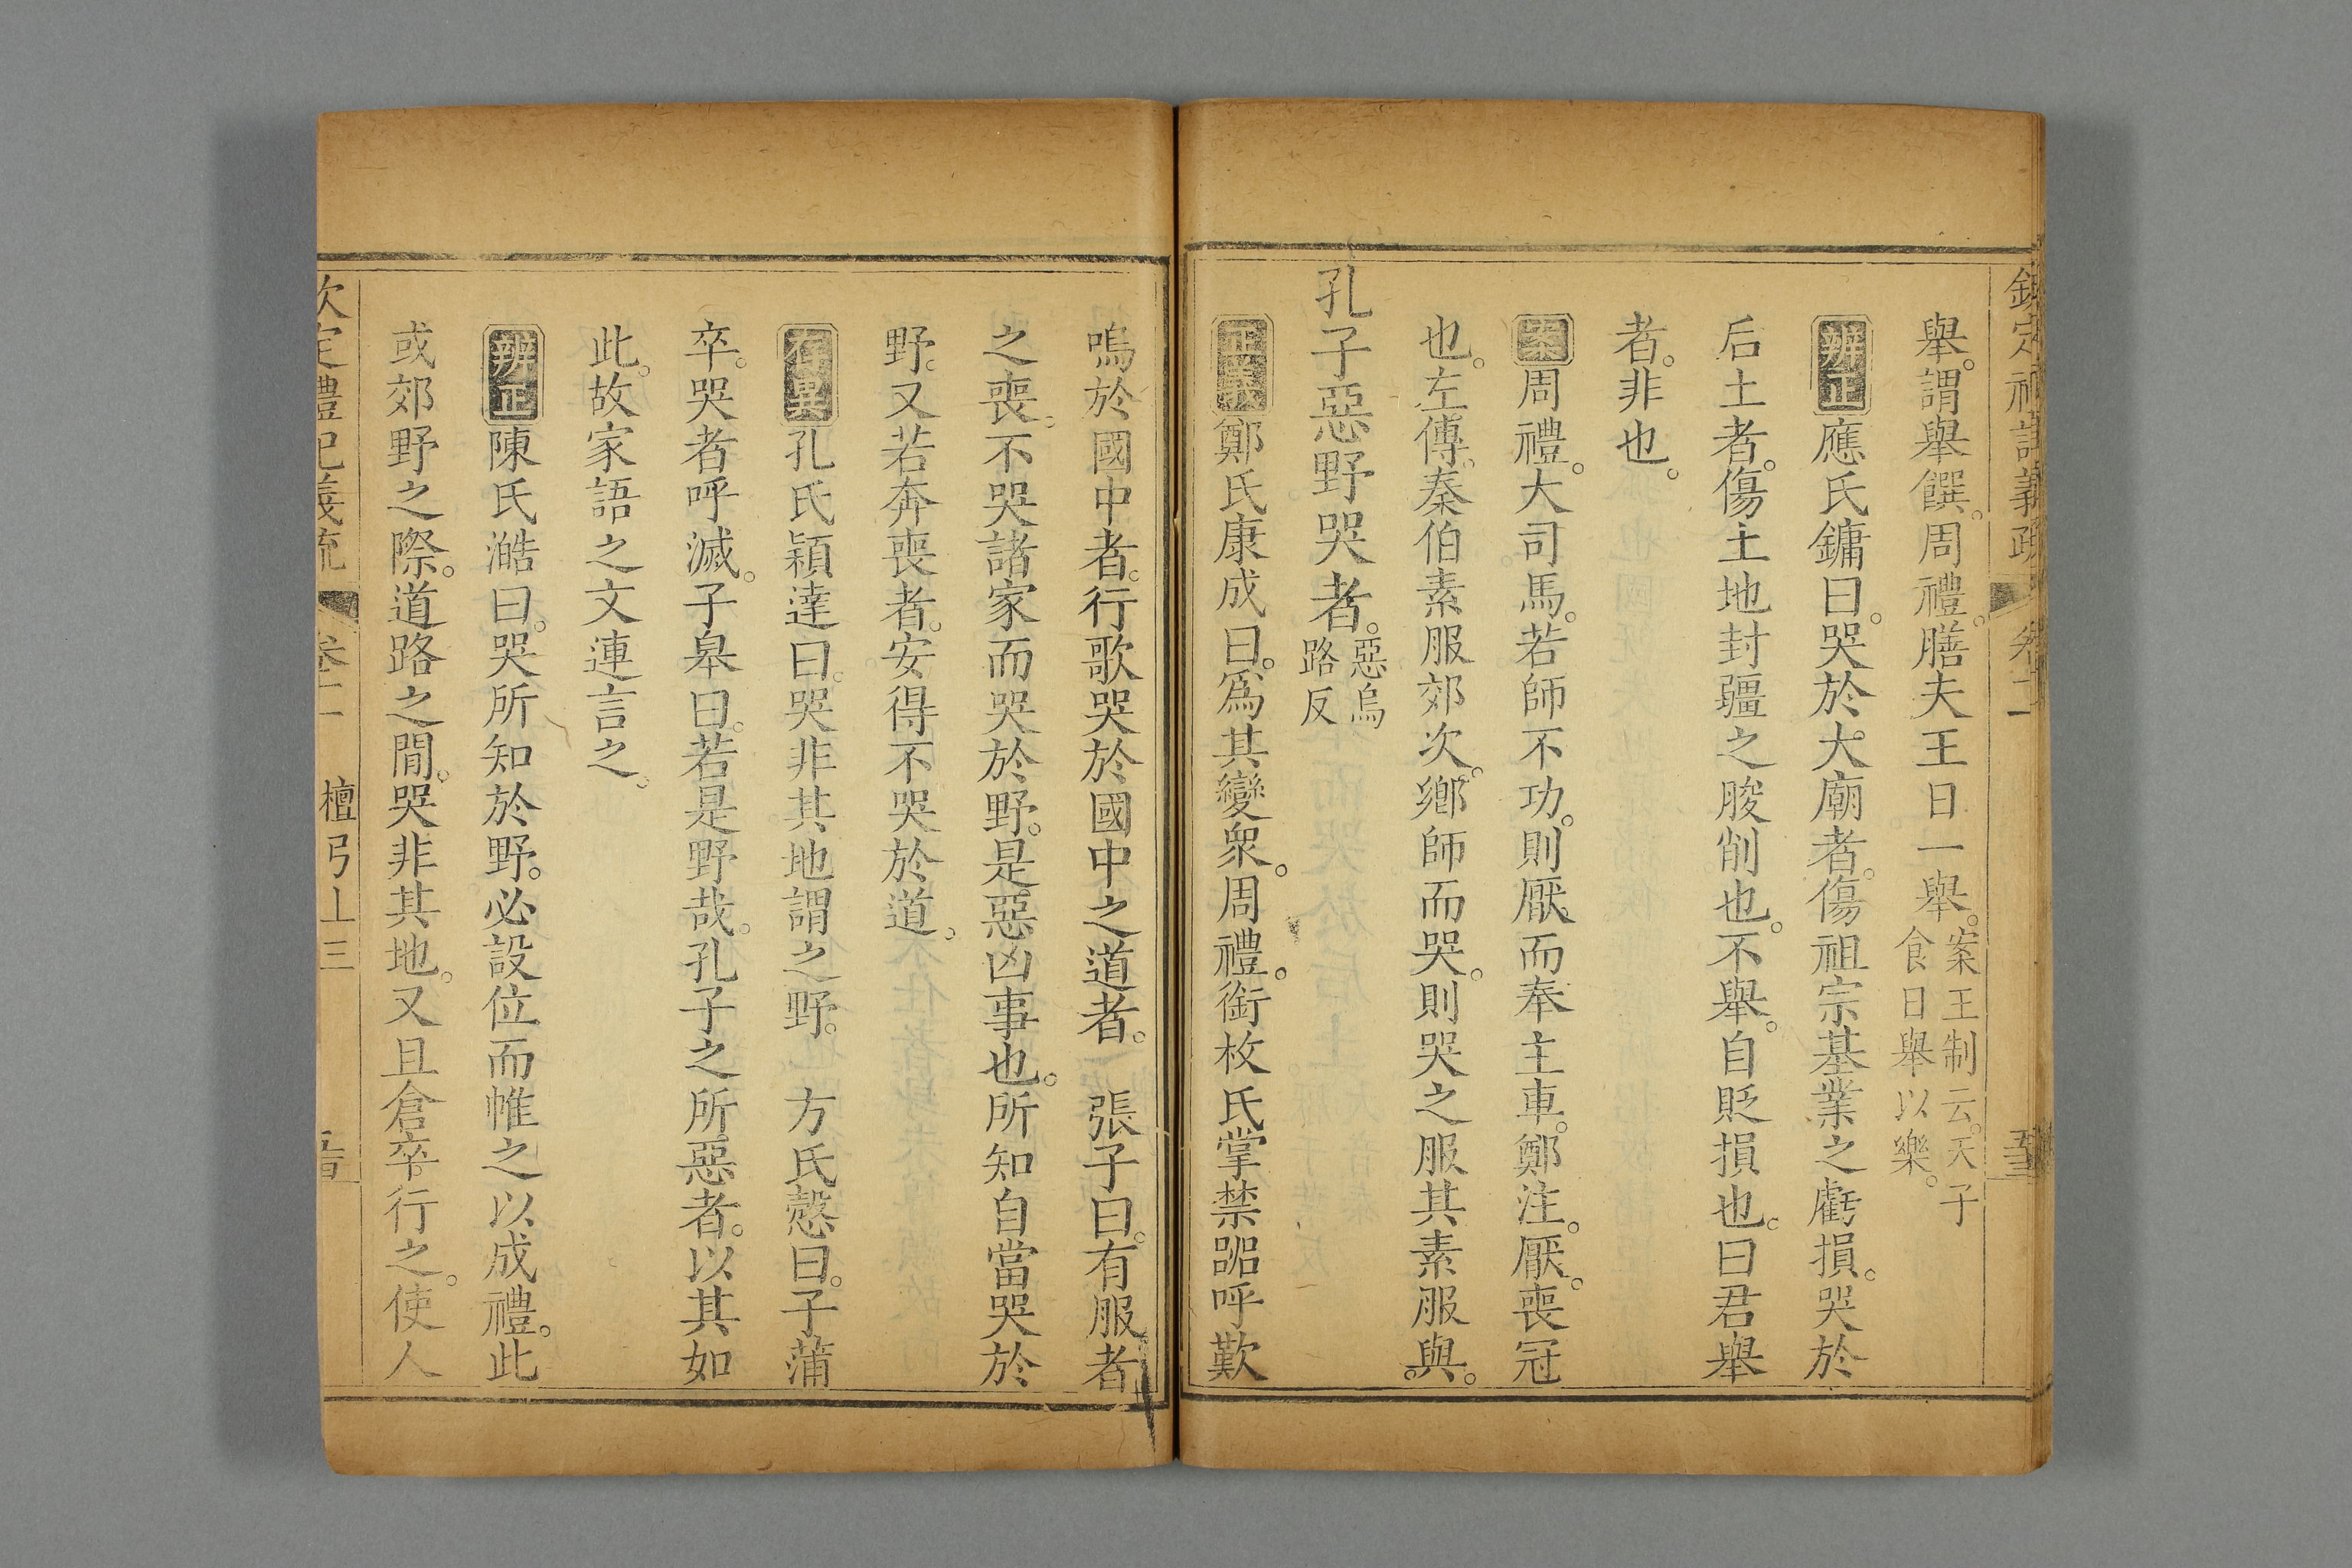 欽定禮記義疏 卷十一 
舉。謂舉饌。周禮。膳夫王日一舉。案王制云。天子食日舉以樂。
辨正應氏鏞曰。哭於大廟者。傷祖宗基業之虧損。哭於
后土者。傷土地封疆之朘削也。不舉。自貶損也。曰君舉
者。非也。
案周禮。大司馬。若師不功。則厭而奉主車。鄭注。厭。喪冠
也。左傳。秦伯素服郊次。鄉師而哭。則哭之服其素服與。
孔子惡野哭者。惡烏路反
正義鄭氏康成曰。為其變衆。周禮。銜枚氏掌禁嘂呼歎
嗚於國中者。行歌哭於國中之道者。 張子曰。有服者
之喪。不哭諸家而哭於野。是惡凶事也。所知自當哭於
野。又若奔喪者。安得不哭於道。
存異孔氏穎達曰。哭非其地謂之野。 方氏慤曰。子蒲
卒。哭者呼滅。子皋曰。若是野哉。孔子之所惡者。以其如
此。故家語之文連言之。
辨正陳氏澔曰。哭所知於野。必設位而帷之以成禮。此
或郊野之際。道路之間。哭非其地。又且倉卒行之。使人
欽定禮記義疏 卷十一 檀弓上三